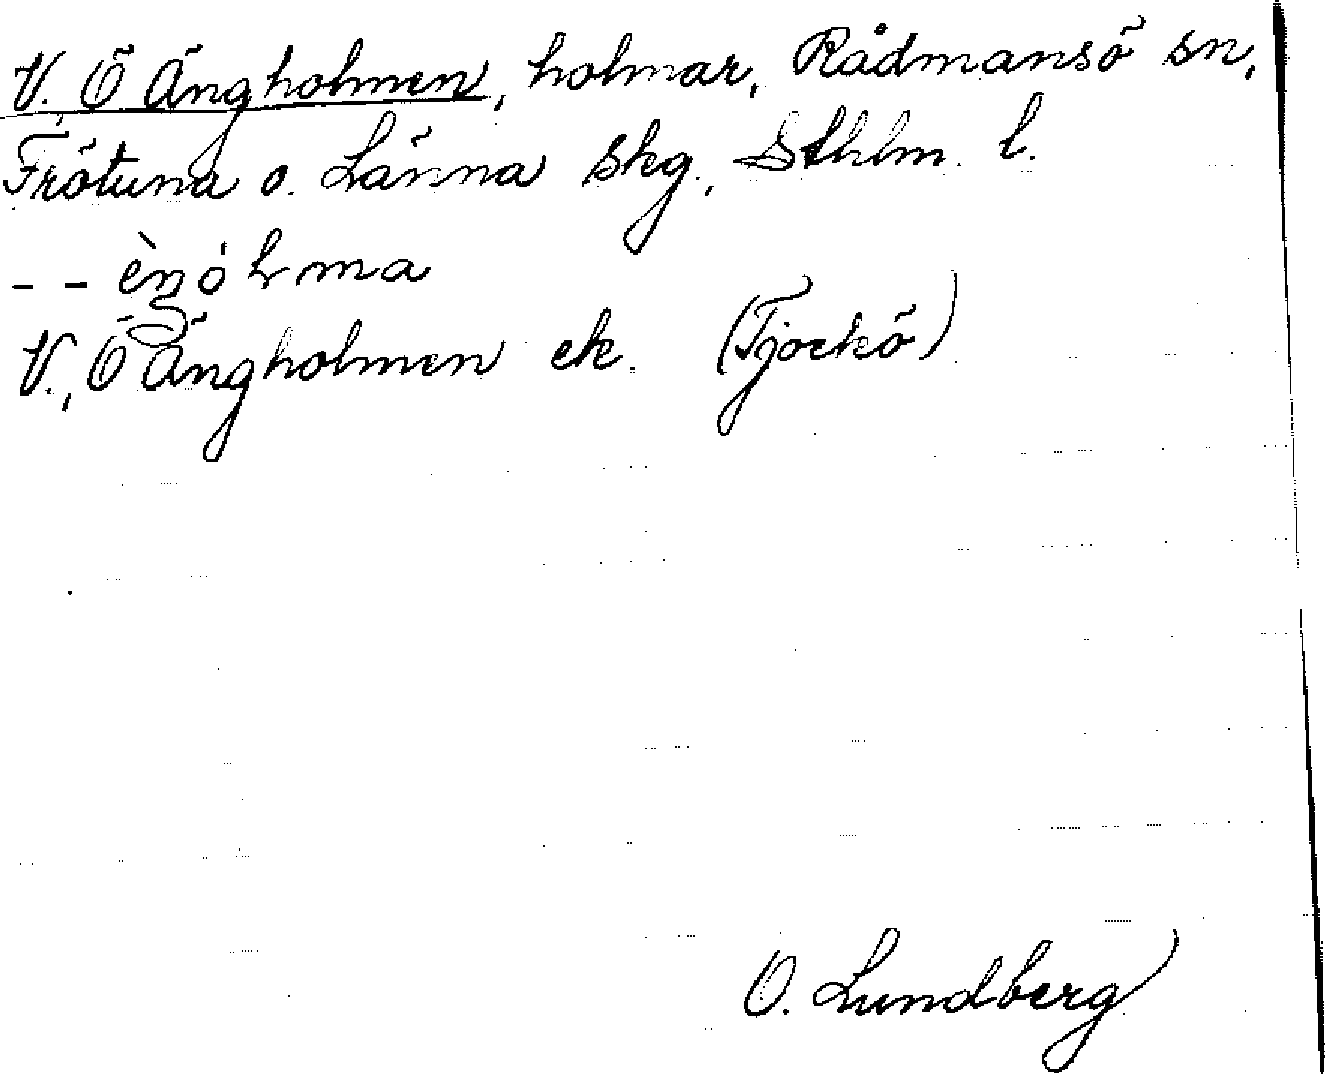 V., Ö Ängholmen, holmar, Rådmansö sn,
Frötuna o. Länna skg., Sthlm. l.
-- èŋóɬma
V., Ö Ängholmen ek. (Tjockö)
O. Lundberg